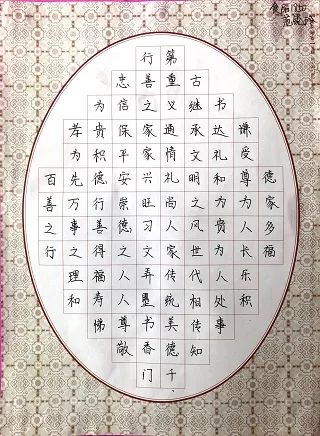 百善之行
孝为先万事之理和
为贵积德行善得福寿悌
忠信保平安崇德之人人尊敬
行善之家家兴旺习文弄墨书香门
第重义通情礼尚人家传统美德千
古继承文明之风世代相传知
书达礼和为贵为人处事
谦受尊为人长乐积
德家多福